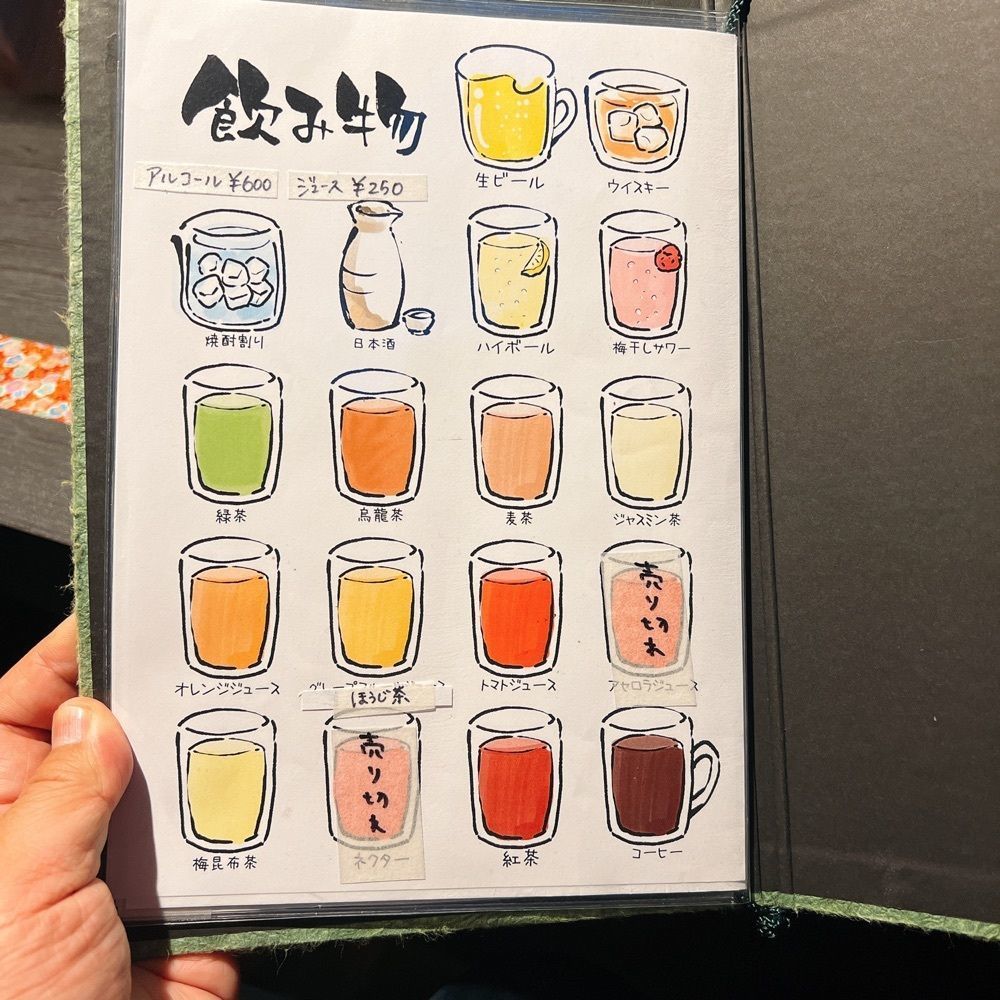 飲み物
生ビール
ウイスキー
アルコール ¥600
ジュース ¥250
焼酎割り
日本酒
ハイボール
梅干しサワー
緑茶
烏龍茶
麦茶
ジャスミン茶
オレンジジュース
ほうじ茶
トマトジュース
売り切れ
アセロラジュース
梅昆布茶
売り切れ
ネクター
紅茶
コーヒー